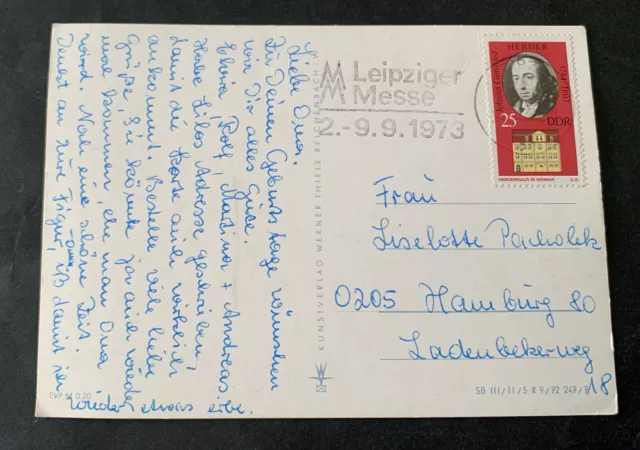 Liebe Oma.
Zu Deinem Geburtstage wünschen
wir Dir alles Gute.
Rolf, + Andreas
Habe Lilos Adresse geschrieben,
damit die Karte auch wirklich
ankommt. Bestelle viele liebe
Grüße, Sie könnte ja auch wieder
mal kommen, ehe man Oma
wird. Noch eine schöne Zeit.
Denkt an Eure Figur, Oma iß damit ich
wieder etwas erbe.
EVP M 0,20
KUNSTVERLAG WERNER THIELE REICHENBACH
Leipziger
Messe
2.-9.9.1973
Johann Gottfried
HERDER
1744 1803
25
DDR
HERDERHAUS IN WEIMAR
Frau
Liselotte Pacholek
0205 Hamburg 80
Ladenbekerweg
18
SB III/11/5 K 9/72 247/3